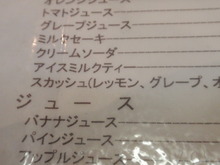 オレンジジュース
トマトジュース
グレープジュース
ミルクセーキ
クリームソーダ
アイスミルクティ
スカッシュ(レッモン、グレープ、オ
ジュース
バナナジュース
パインジュース
アップルジュース